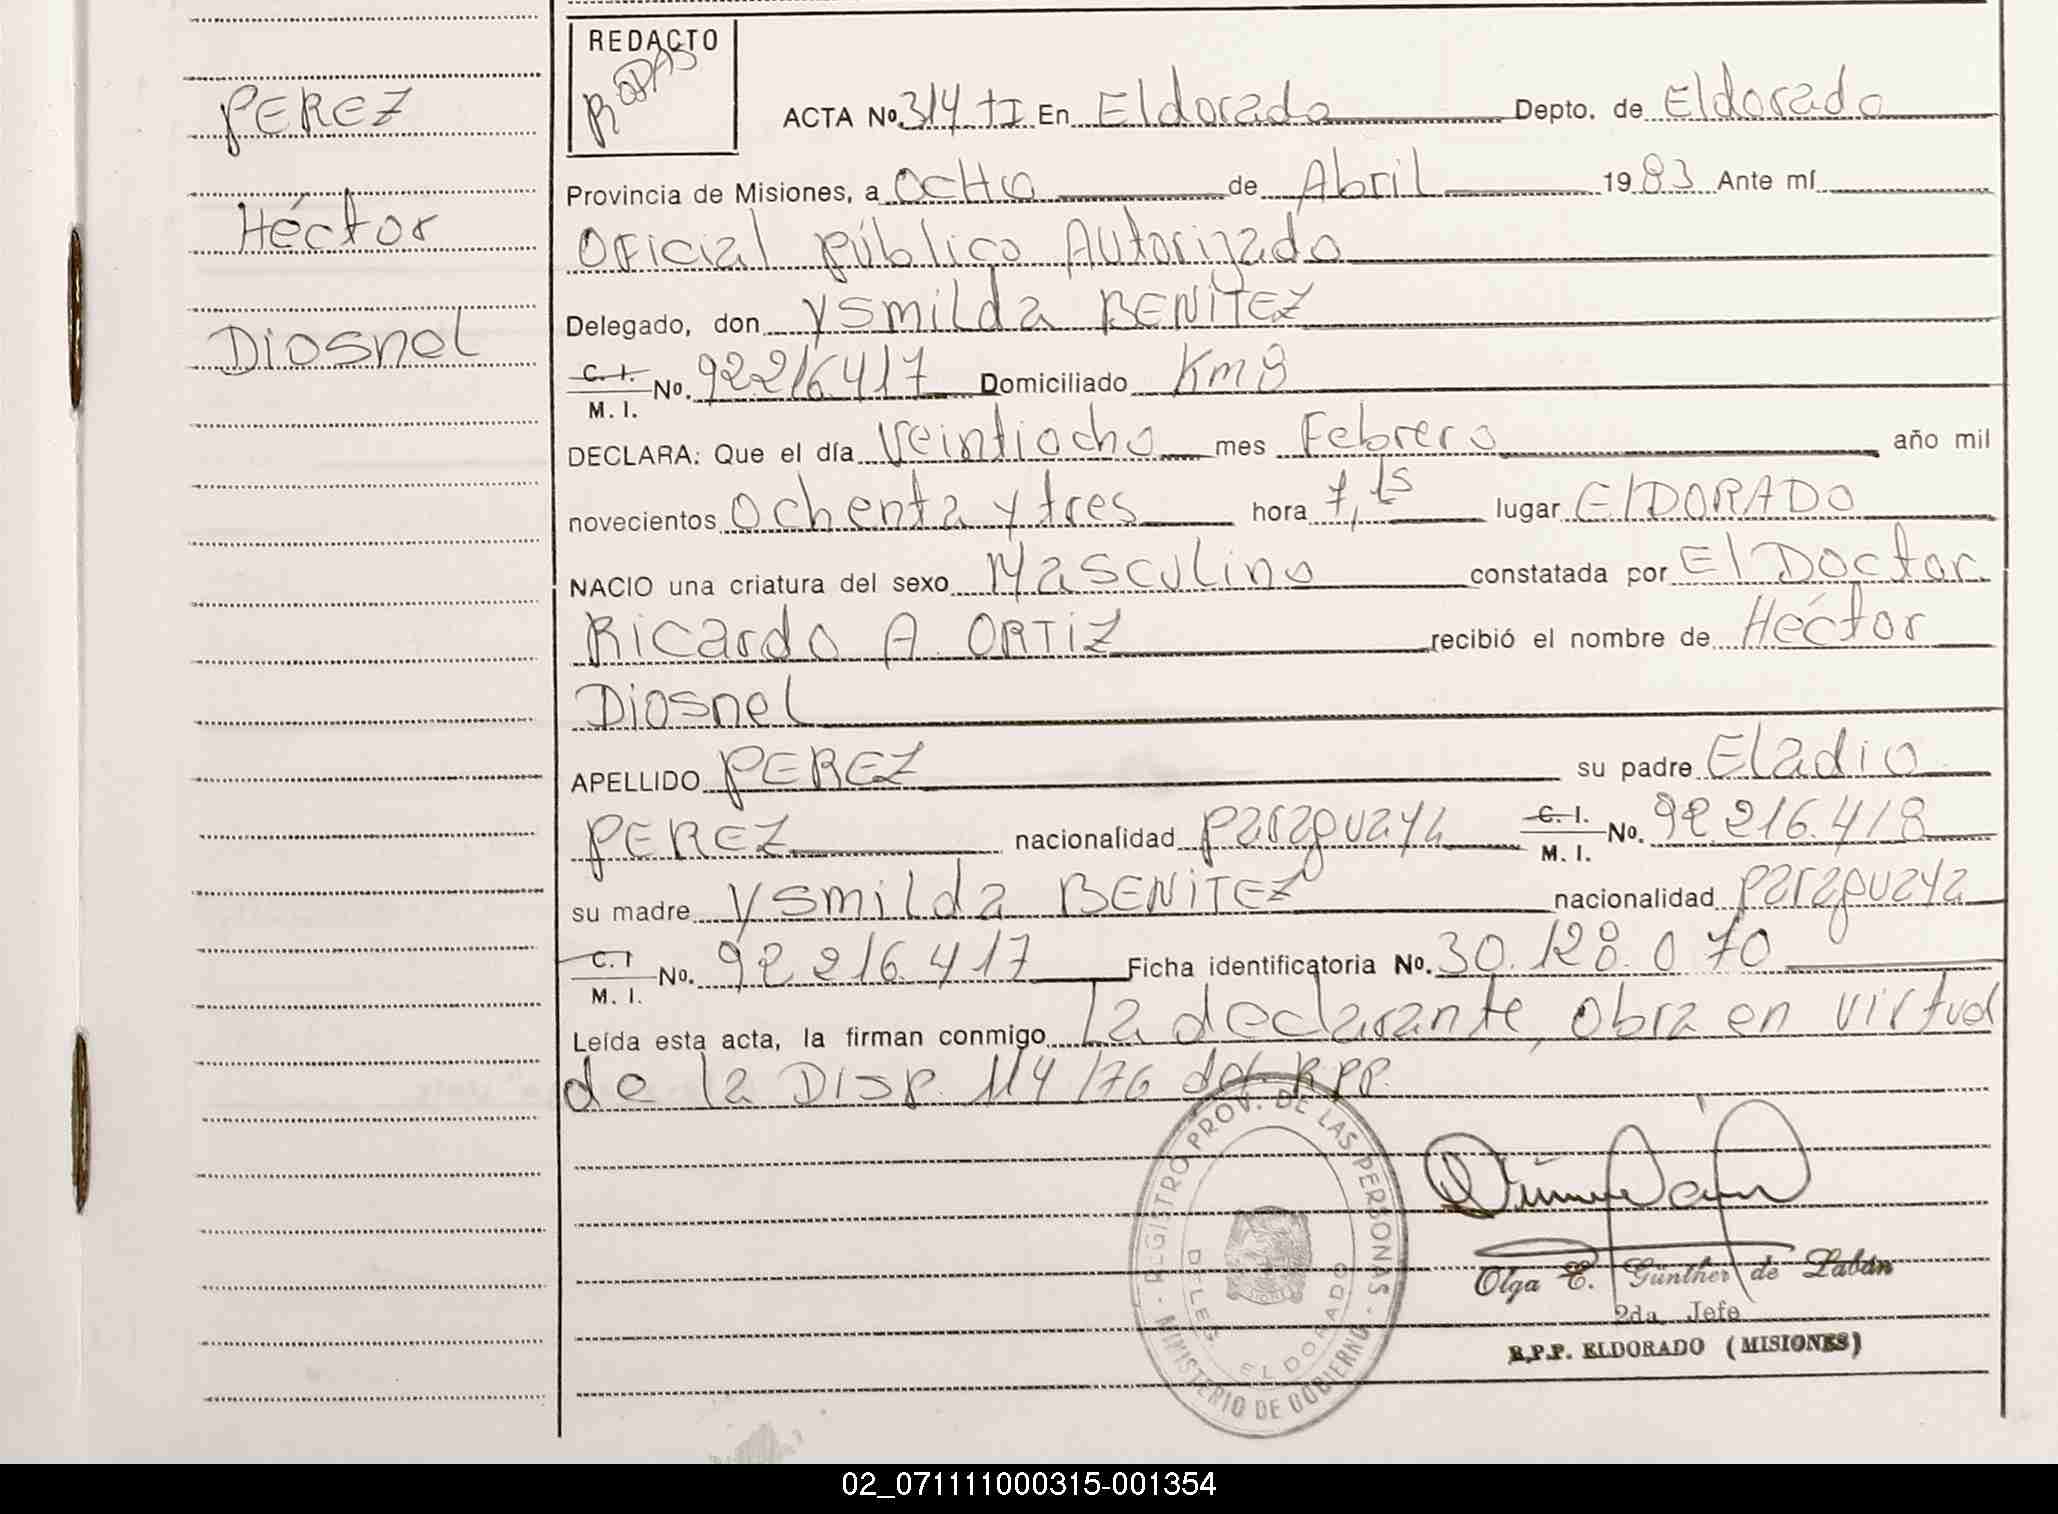 REDACTO
RODAS
PEREZ
Héctor
Diosnel
ACTA No. 314 tI En Eldorado Depto. de Eldorado
Provincia de Misiones, a OCHO de Abril 1983 Ante mí
Oficial público Autorizado
Delegado, don Ysmilda BENITEZ
C. I. / M. I. No. 92.216.417 Domiciliado Km 8
DECLARA: Que el día Veintiocho mes Febrero año mil
novecientos Ochenta y tres hora 7,15 lugar ElDORADO
NACIO una criatura del sexo Masculino constatada por El Doctor
Ricardo A. ORTIZ recibió el nombre de Héctor
Diosnel
APELLIDO PEREZ su padre Eladio
PEREZ nacionalidad paraguaya C. I. / M. I. No. 92.216.418
su madre Ysmilda BENITEZ nacionalidad paraguaya
C. I / M. I. No. 92.216.417 Ficha identificatoria No. 30.128.070
Leída esta acta, la firman conmigo La declarante, obra en virtud
de la Disp. 114/76 del R.P.P.
REGISTRO PROV. DE LAS PERSONAS - MINISTERIO DE GOBIERNO
DELEG. ELDORADO
Olga E. Günther de Labán
2da. Jefe
R.P.P. ELDORADO (MISIONES)
02_071111000315-001354